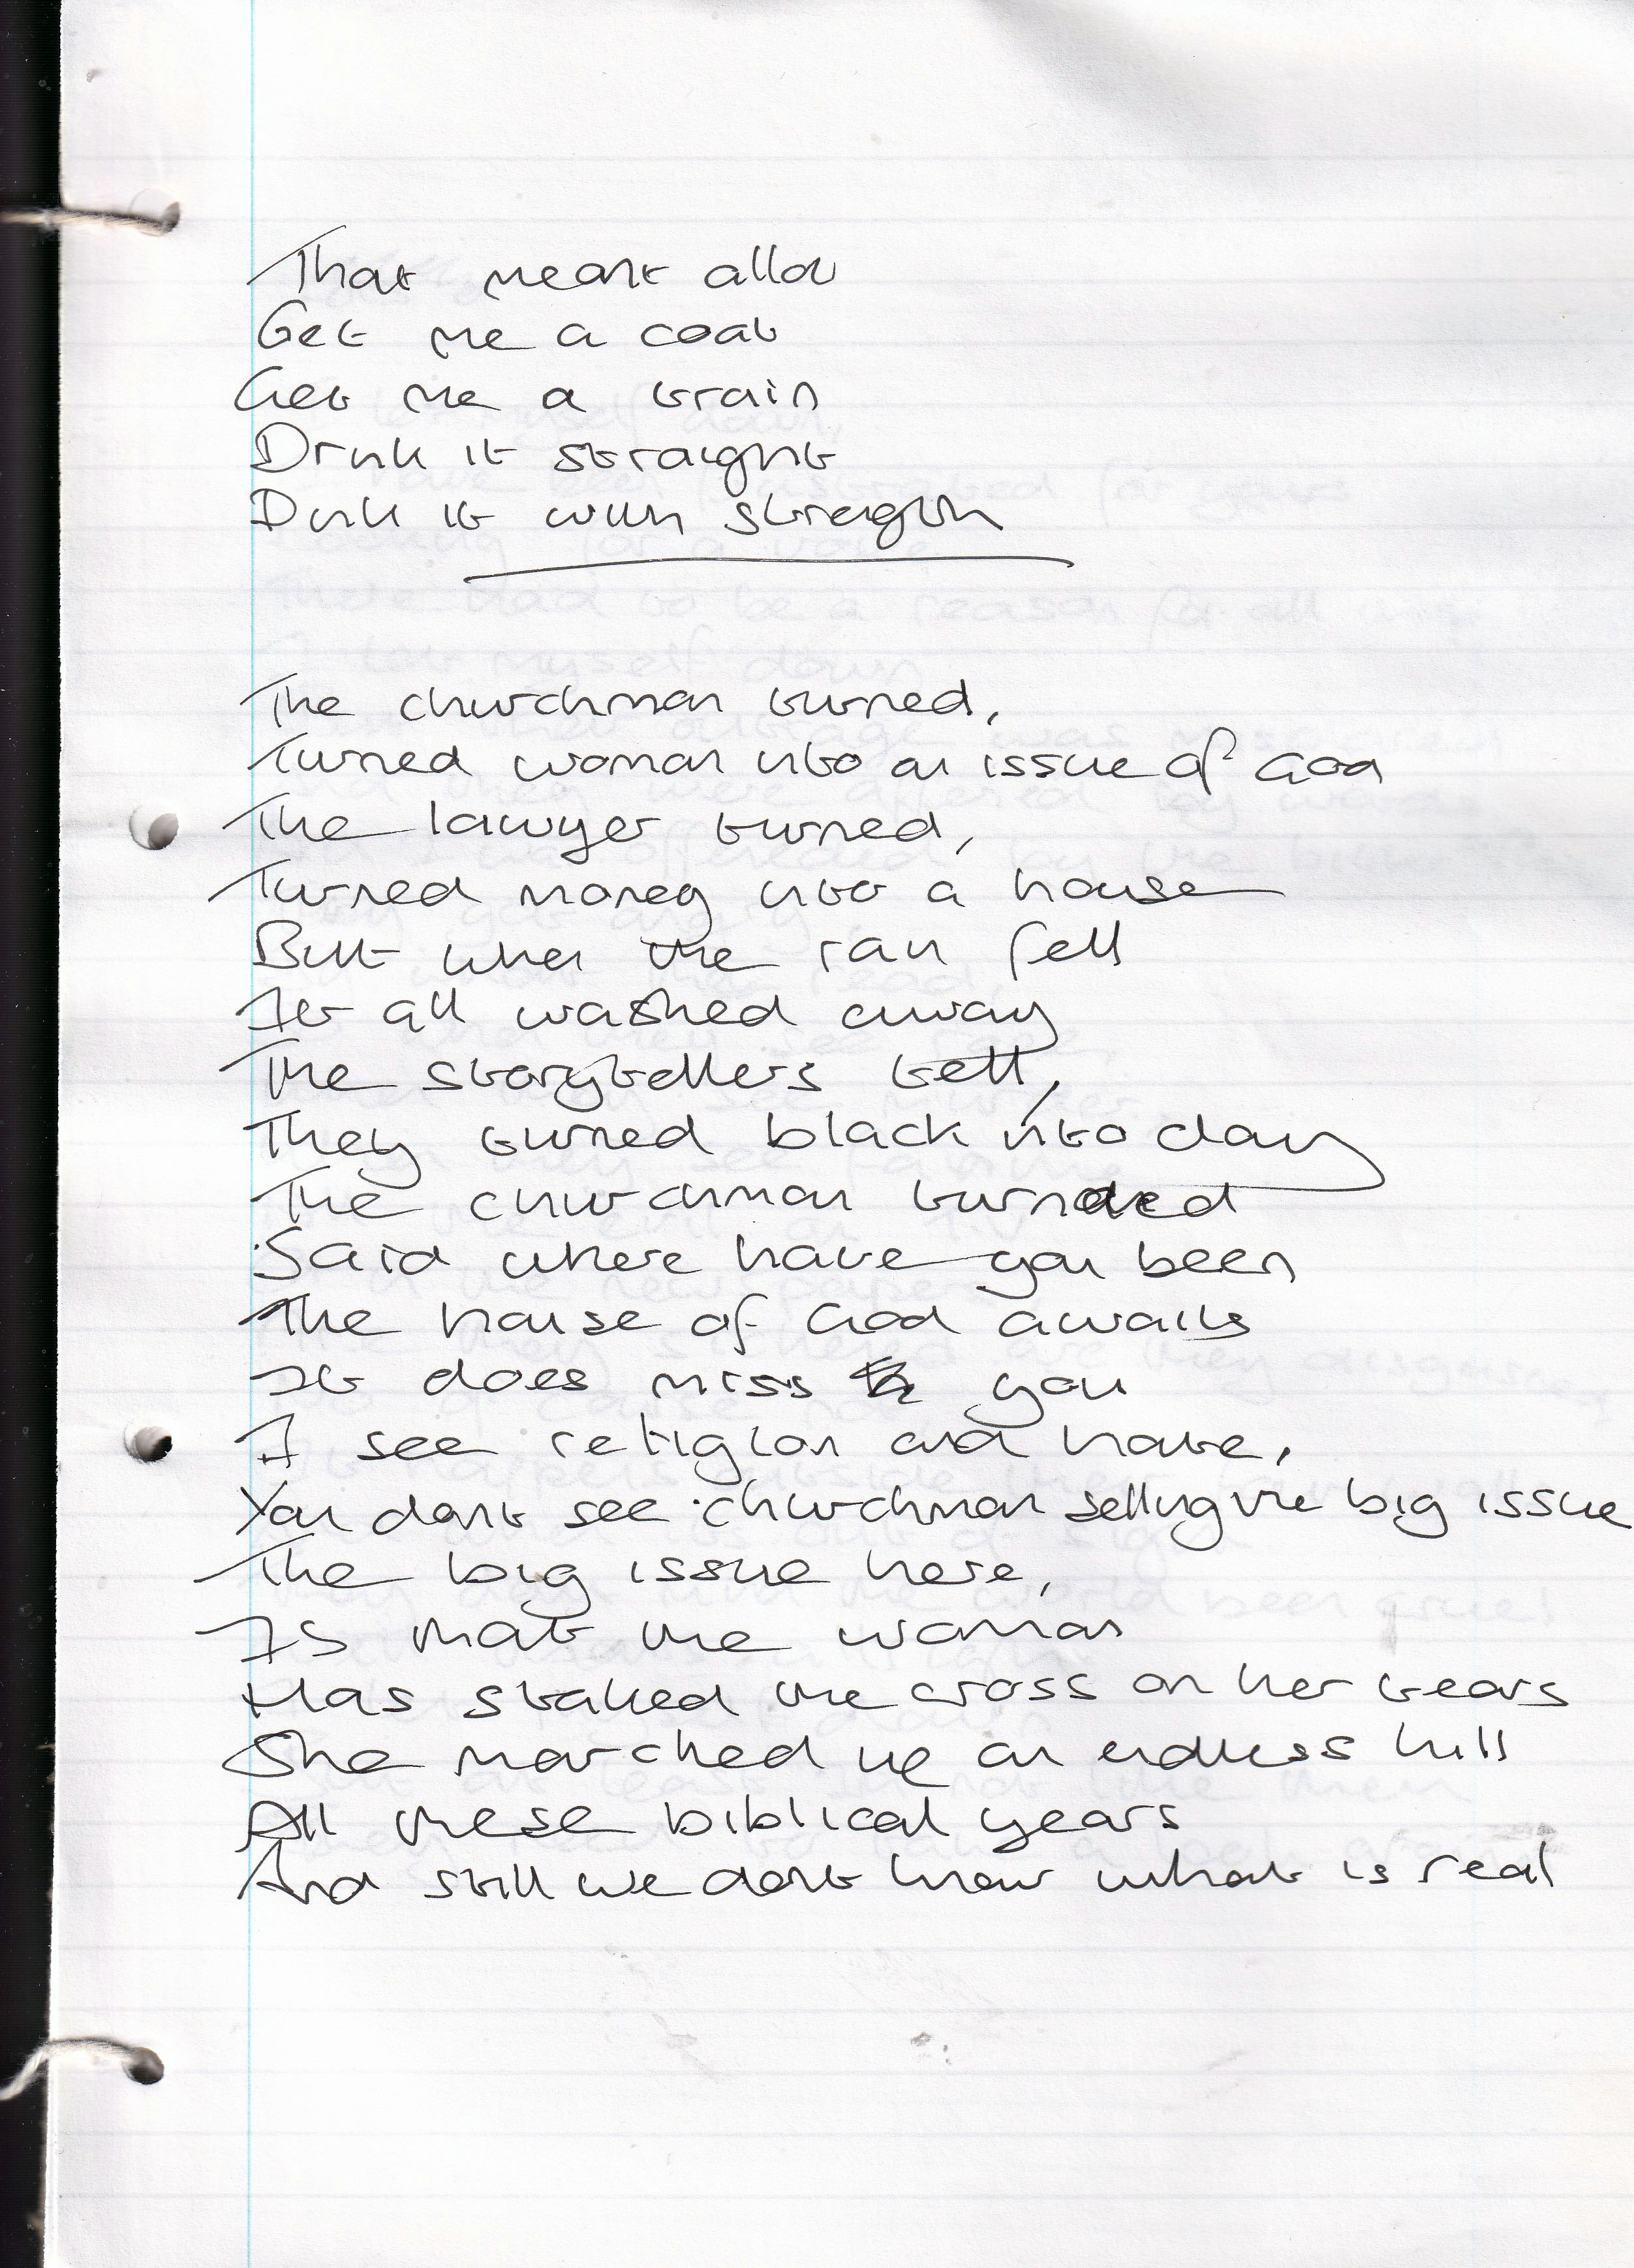 That meant allow
Get me a coat
Get me a train
Drink it straight
Drink it with strength
The churchman turned,
Turned woman into an issue of God
The lawyer turned,
Turned money into a house
But when the rain fell
It all washed away
The storytellers tell,
They turned black into day
The churchman turned
Said where have you been
The house of God awaits
It does miss you
I see religion and hate,
You dont see churchman selling the big issue
The big issue here,
Is that the woman
Has staked the cross on her tears
She marched up an endless hill
All these biblical years
And still we dont know what is real